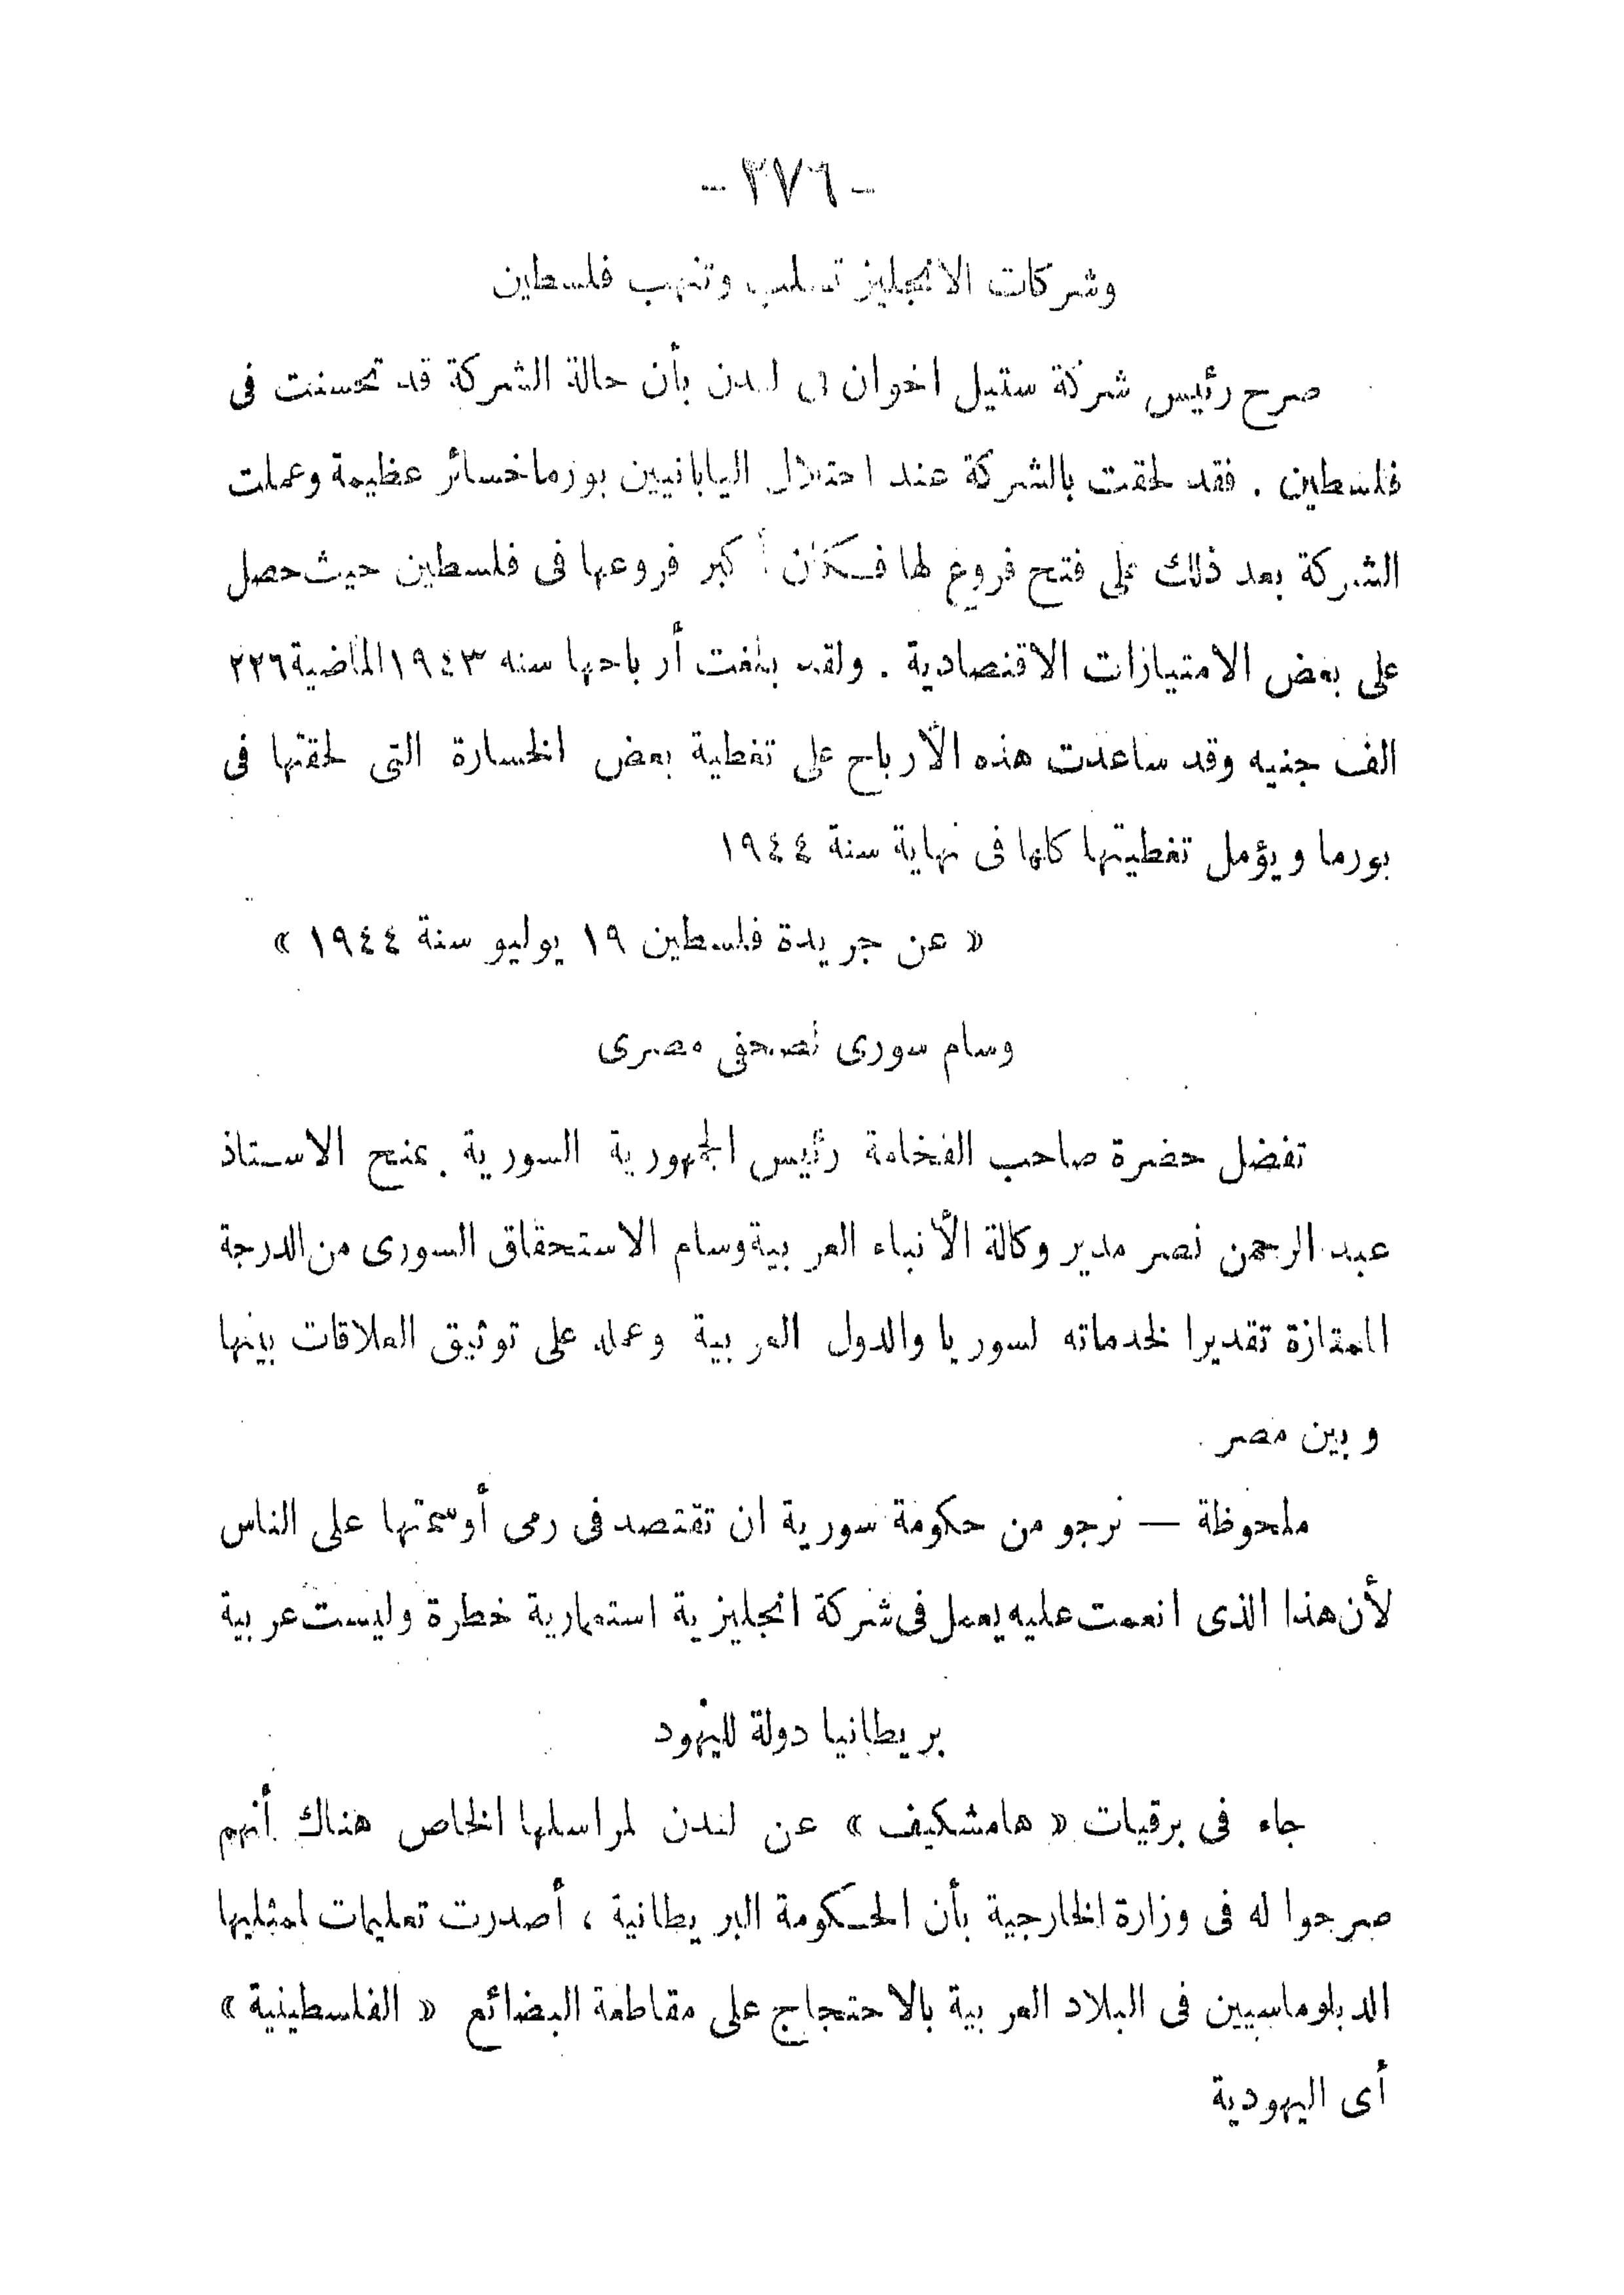 - ٢٧٦ -
وشركات الانجليز تسلب وتنهب فلسطين
صرح رئيس شركة ستيل اخوان فى لندن بأن حالة الشركة قد تحسنت فى
فلسطين . فقد لحقت بالشركة عند احتلال اليابانيين بورما خسائر عظيمة وعملت
الشركة بعد ذلك على فتح فروع لها فكان أكبر فروعها فى فلسطين حيث حصل
على بعض الامتيازات الاقتصادية . ولقد بلغت أرباحها سنه ١٩٤٣ الماضية ٢٢٦
الف جنيه وقد ساعدت هذه الأرباح على تغطية بعض الخسارة التى لحقتها فى
بورما ويؤمل تغطيتها كلها فى نهاية سنة ١٩٤٤
« عن جريدة فلسطين ١٩ يوليو سنة ١٩٤٤ »
وسام سورى لصحفى مصرى
تفضل حضرة صاحب الفخامة رئيس الجمهورية السورية بمنح الاستاذ
عبد الرحمن نصر مدير وكالة الأنباء العربية وسام الاستحقاق السورى من الدرجة
الممتازة تقديرا لخدماته لسوريا والدول العربية وعمله على توثيق العلاقات بينها
وبين مصر .
ملحوظة — نرجو من حكومة سورية ان تقتصد فى رمى أوسمتها على الناس
لأن هذا الذى انعمت عليه يعمل فى شركة انجليزية استعمارية خطرة وليست عربية
بريطانيا دولة لليهود
جاء فى برقيات « هامشكيف » عن لندن لمراسلها الخاص هناك أنهم
صرحوا له فى وزارة الخارجية بأن الحكومة البريطانية ، أصدرت تعليمات لممثليها
الدبلوماسيين فى البلاد العربية بالاحتجاج على مقاطعة البضائع « الفلسطينية »
أى اليهودية